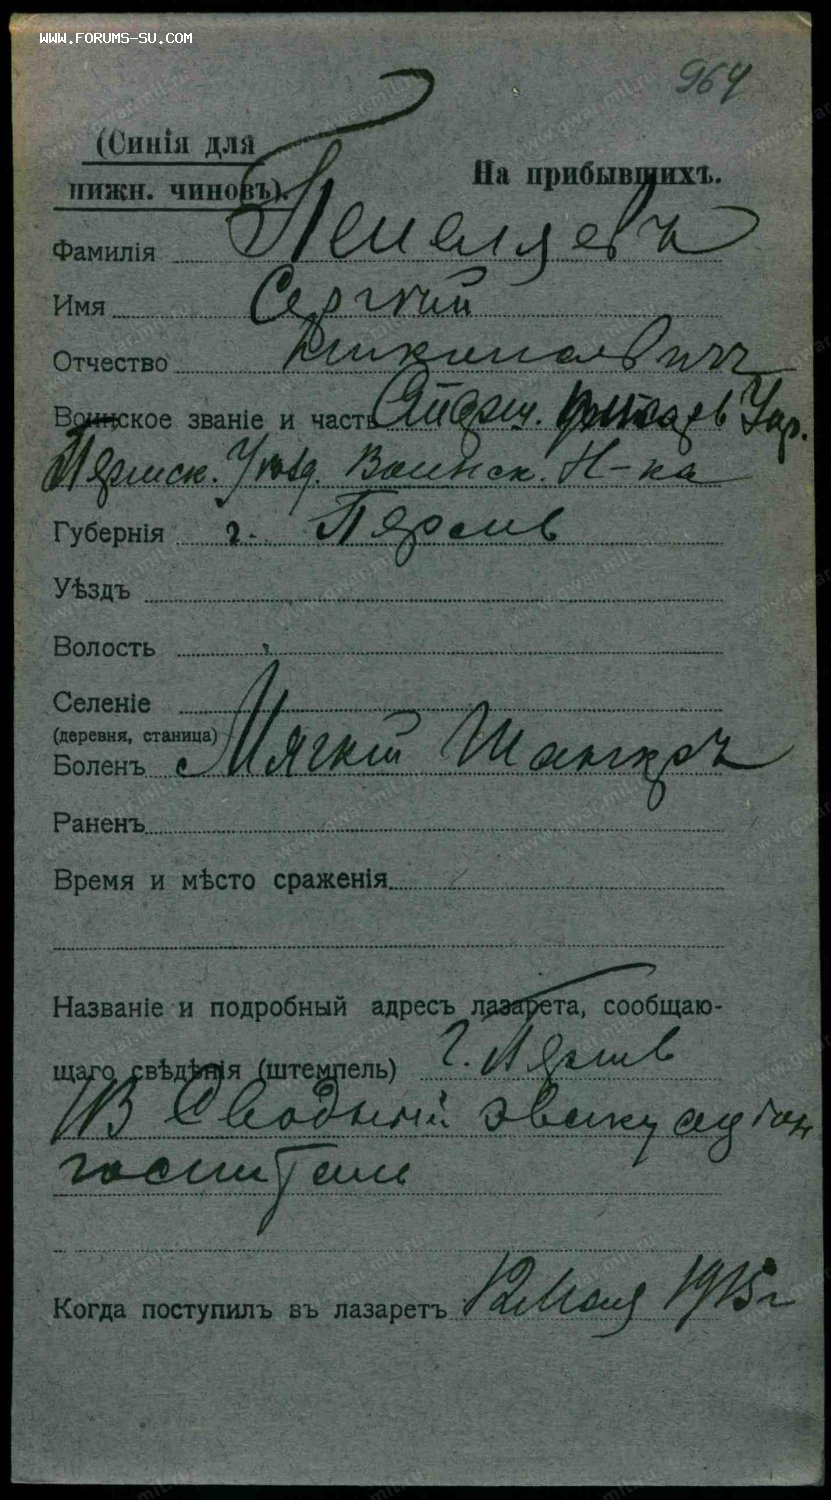 WWW.FORUMS-SU.COM
964
(Синія для
нижн. чиновъ).
На прибывшихъ.
Фамилія Пепеляевъ
Имя Сергѣй
Отчество
Воинское званіе и часть
Пермск. Уѣзд. Воинск. Н-ка
Губернія г. Пермь
Уѣздъ
Волость
Селеніе
(деревня, станица)
Боленъ Мягкій Шанкръ
Раненъ
Время и мѣсто сраженія
Названіе и подробный адресъ лазарета, сообщаю-
щаго свѣдѣнія (штемпель) г. Пермь
Сводный эвакуаціон
госпиталь
Когда поступилъ въ лазаретъ 12 Мая 1915 г